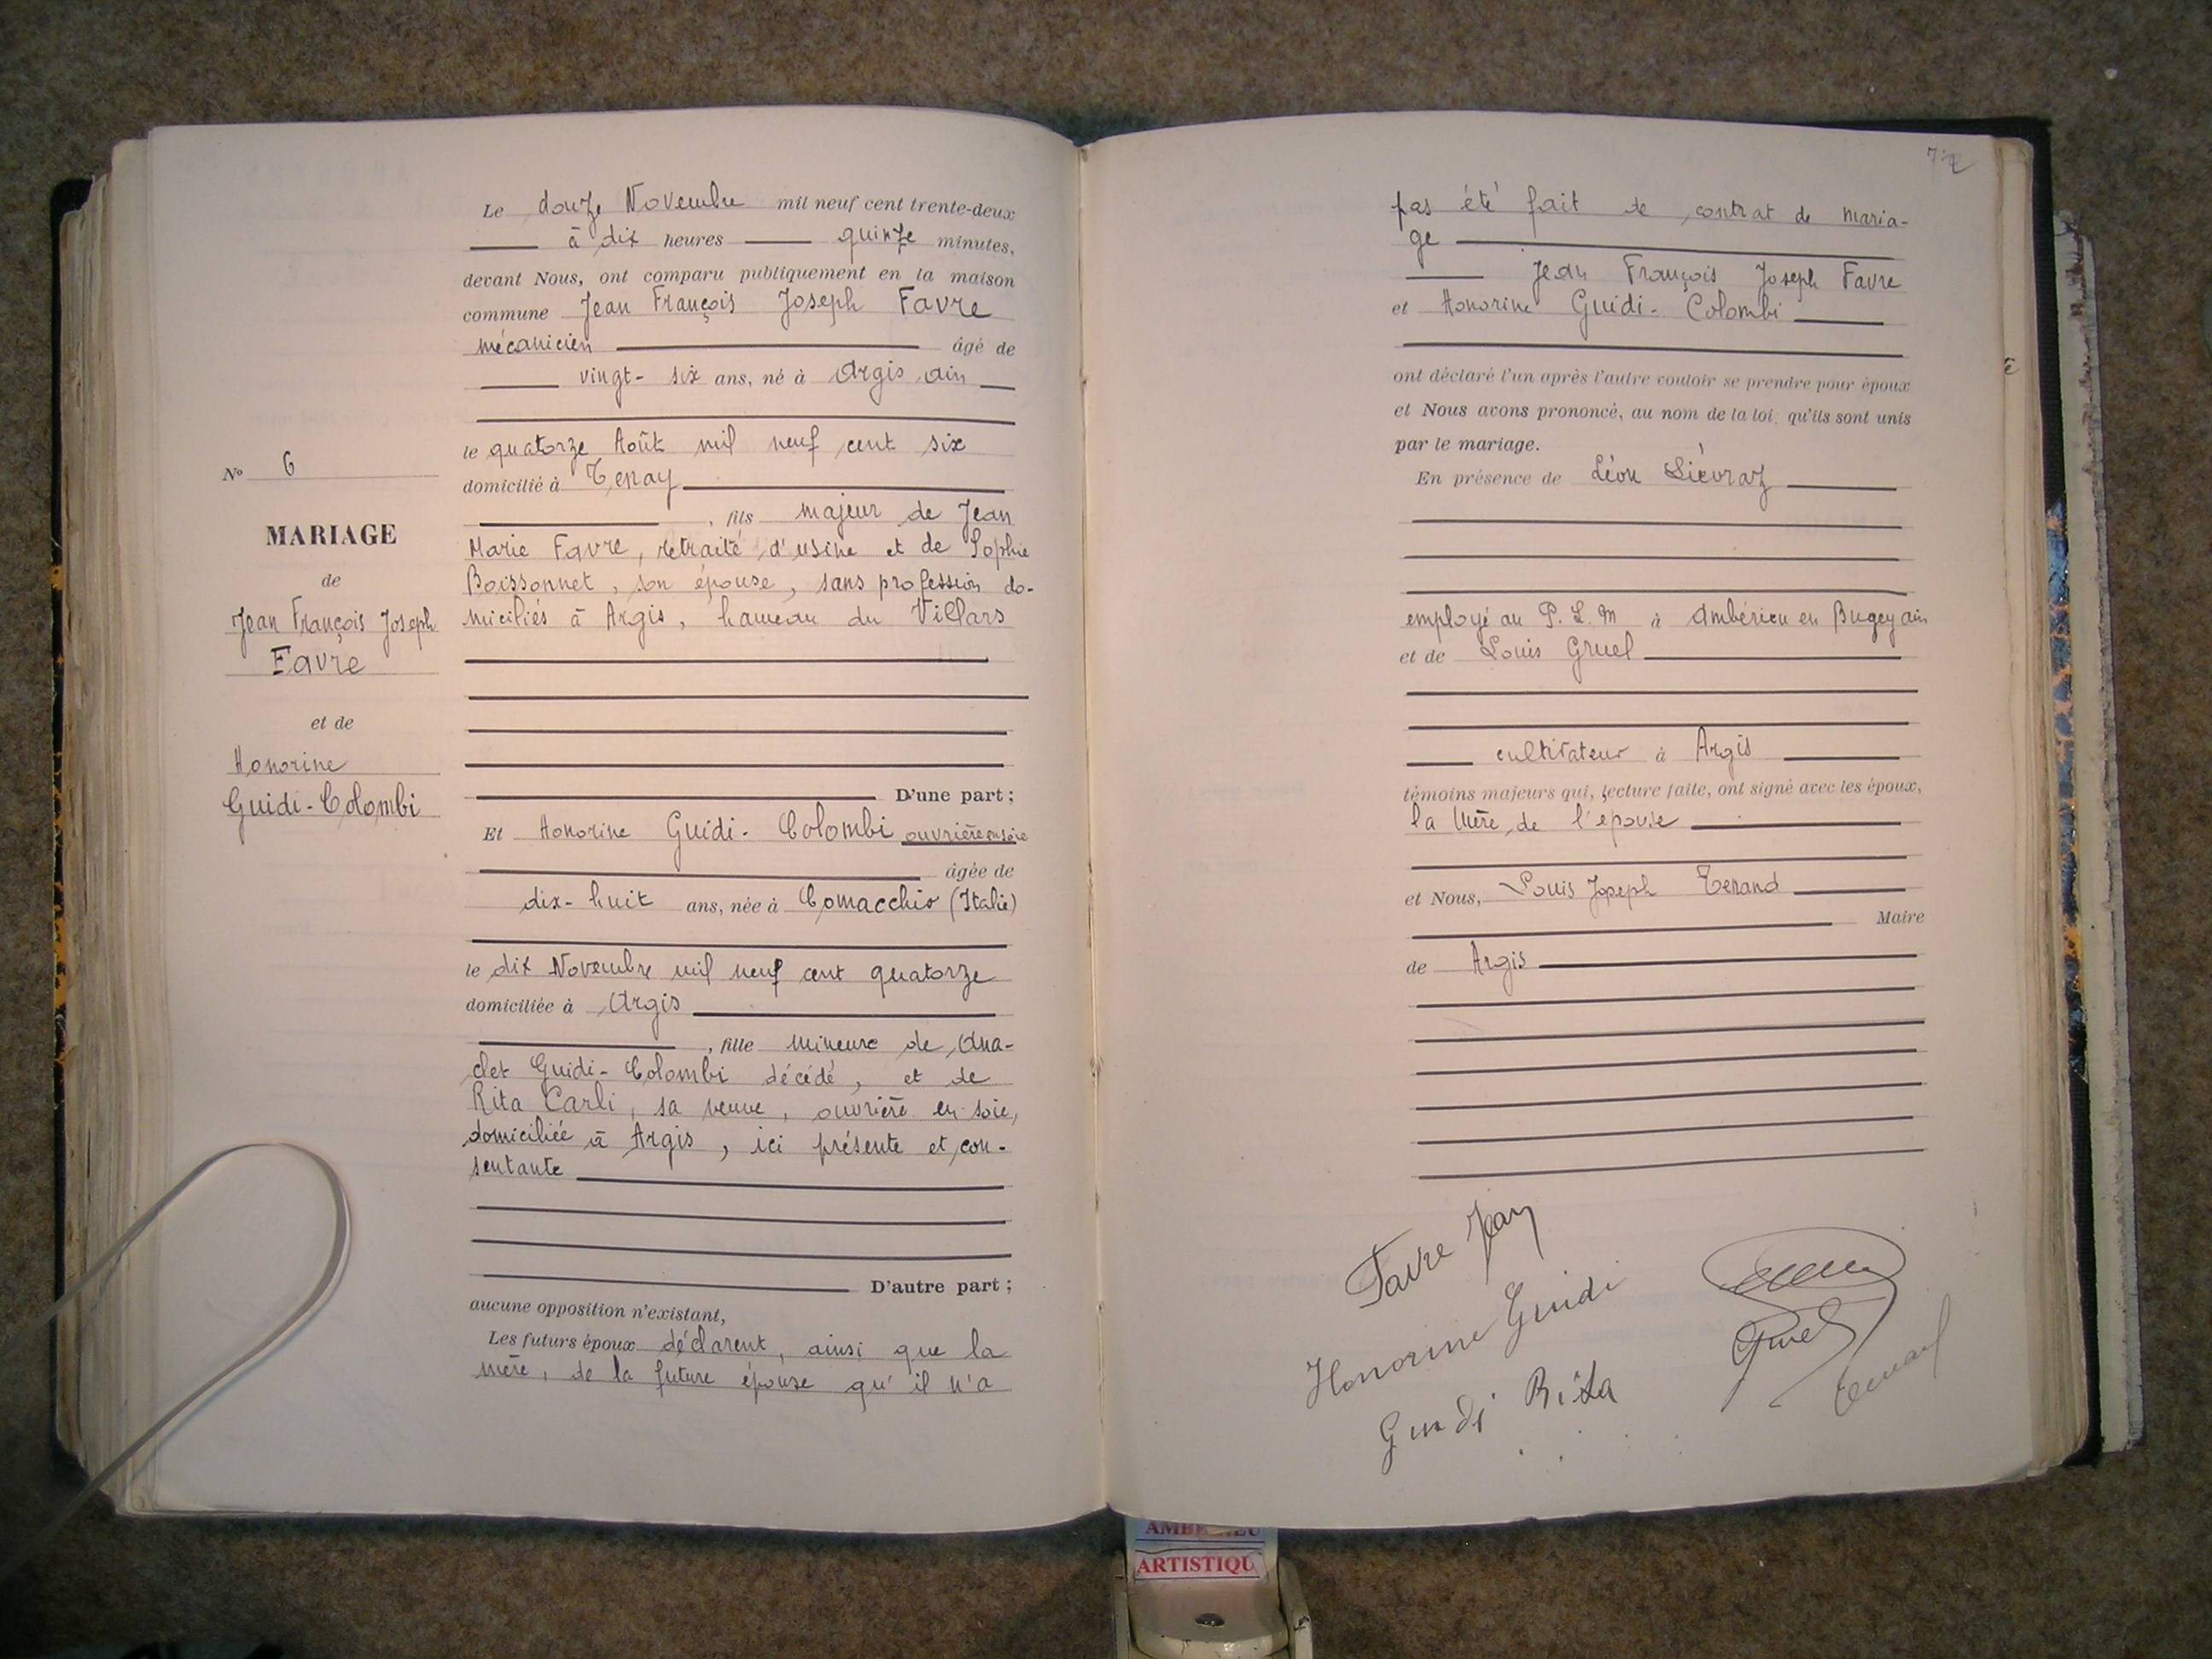 Le douze Novembre mil neuf cent trente-deux
à dix heures quinze minutes,
devant Nous, ont comparu publiquement en la maison
commune Jean François Joseph Favre
mécanicien âgé de
vingt-six ans, né à Argis Ain
le quatorze Août mil neuf cent six
domicilié à Tenay
, fils majeur de Jean
Marie Favre, retraité d'usine et de Sophie
Boissonnet, son épouse, sans profession do-
miciliés à Argis, hameau du Villars
D'une part ;
N° 6
MARIAGE
de
Jean François Joseph
Favre
et de
Honorine
Guidi-Colombi
Et Honorine Guidi-Colombi ouvrière en soie
âgée de
dix-huit ans, née à Comacchio (Italie)
le dix Novembre mil neuf cent quatorze
domiciliée à Argis
, fille mineure de Ana-
clet Guidi-Colombi décédé, et de
Rita Carli, sa veuve, ouvrière en soie,
domiciliée à Argis, ici présente et con-
sentante
D'autre part ;
aucune opposition n'existant,
Les futurs époux déclarent, ainsi que la
mère, de la future épouse qu'il n'a
pas été fait de contrat de maria-
ge
Jean François Joseph Favre
et Honorine Guidi-Colombi
ont déclaré l'un après l'autre vouloir se prendre pour époux
et Nous avons prononcé, au nom de la loi, qu'ils sont unis
par le mariage.
En présence de Léon Liévraz
employé au P.L.M à Ambérieu en Bugey Ain
et de Louis Gruel
cultivateur à Argis
témoins majeurs qui, lecture faite, ont signé avec les époux,
la Mère de l'épouse
et Nous, Louis Joseph Tenand
Maire
de Argis
Favre Jean
Honorine Guidi
Guidi Rita
Gruel
Tenand
ARTISTIQU